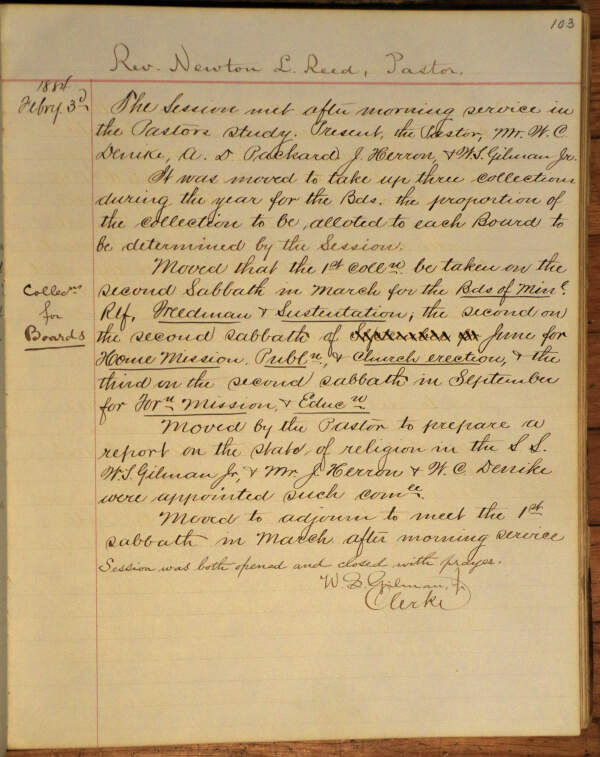 103
Rev. Newton L. Reed, Pastor.
1884
Febry. 3d
The Session met after morning service in
the Pastors study. Present, the Pastor, Mr. W. C.
Denike, A. D. Packard J. Herron, & W. S. Gilman Jr.
It was moved to take up three collections
during the year for the Bds. the proportion of
the collection to be, alloted to each Board to
be determined by the Session.
Collecns
for
Boards
Moved that the 1st Colln. be taken on the
second Sabbath in March for the Bds of Minl.
Rlf, Freedman & Sustentation; the second on
the second sabbath of June for
Home Mission. Publn., & Church erection, & the
third on the second sabbath in September
for Forn Mission, & Educn
Moved by the Pastor to prepare a
report on the state of religion in the S. S.
W. S. Gilman Jr, & Mr J. Herron & W. C. Denike
were appointed such comee.
Moved to adjourn to meet the 1st
sabbath in March after morning service
Session was both opened and closed with prayer.
W. S. Gilman, Jr.
Clerk